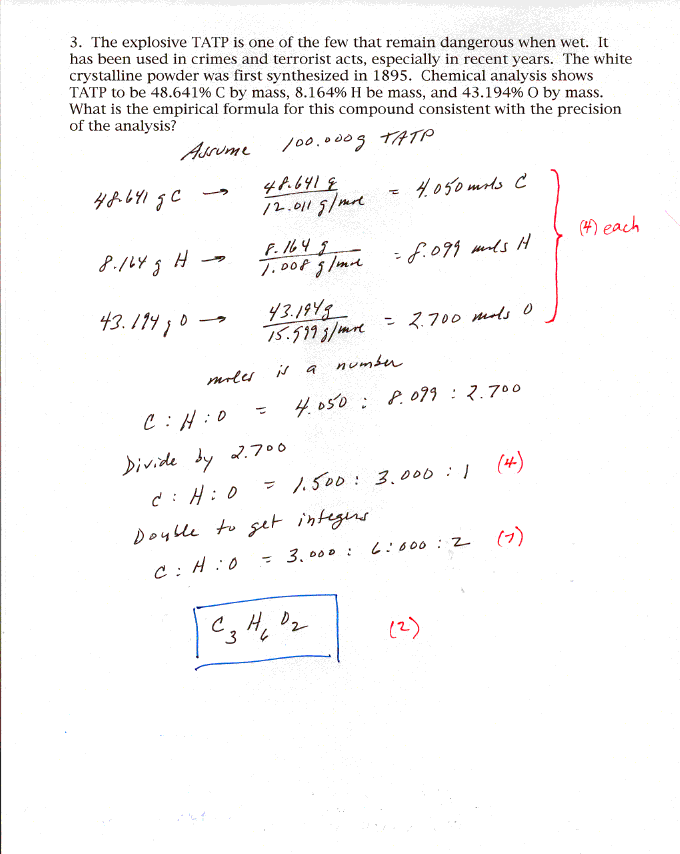 3. The explosive TATP is one of the few that remain dangerous when wet. It
has been used in crimes and terrorist acts, especially in recent years. The white
crystalline powder was first synthesized in 1895. Chemical analysis shows
TATP to be 48.641% C by mass, 8.164% H be mass, and 43.194% O by mass.
What is the empirical formula for this compound consistent with the precision
of the analysis?
Assume 100.000g TATP
48.641 g C → 48.641 g / 12.011 g/mol = 4.050 mols C
(4) each
8.164 g H → 8.164 g / 1.008 g/mol = 8.099 mols H
43.194 g O → 43.194g / 15.999 g/mol = 2.700 mols O
moles is a number
C : H : O = 4.050 : 8.099 : 2.700
Divide by 2.700
C : H : O = 1.500 : 3.000 : 1 (4)
Double to get integers
C : H : O = 3.000 : 6:000 : 2 (7)
C3 H6 O2 (2)